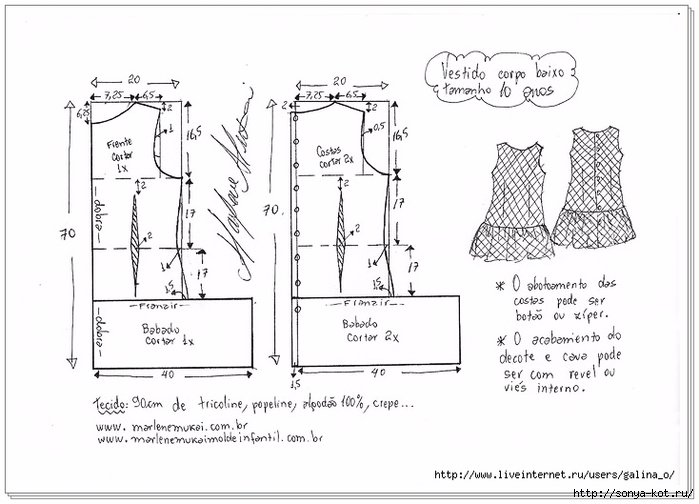 Vestido corpo baixo
tamanho 10 anos
20
7,25 6,5
6,25
2
1
16,5
Frente
Cortar
1x
2
17
dobra
70
2
1
17
1,5
Franzir
dobra
Babado
Cortar 1x
40
Marlene Mukai
20
2
7,25 6,5
2
0,5
16,5
Costas
cortar 2x
2
17
70
2
1
17
1,5
Franzir
Babado
Cortar 2x
1,5
40
* O abotoamento das
costas pode ser
botão ou zíper.
* O acabamento do
decote e cava pode
ser com revel ou
viés interno.
Tecido: 90cm de tricoline, popeline, algodão 100%, crepe...
www.marlenemukai.com.br
www.marlenemukaimoldeinfantil.com.br
http://www.liveinternet.ru/users/galina_o/
https://sonya-kot.ru/